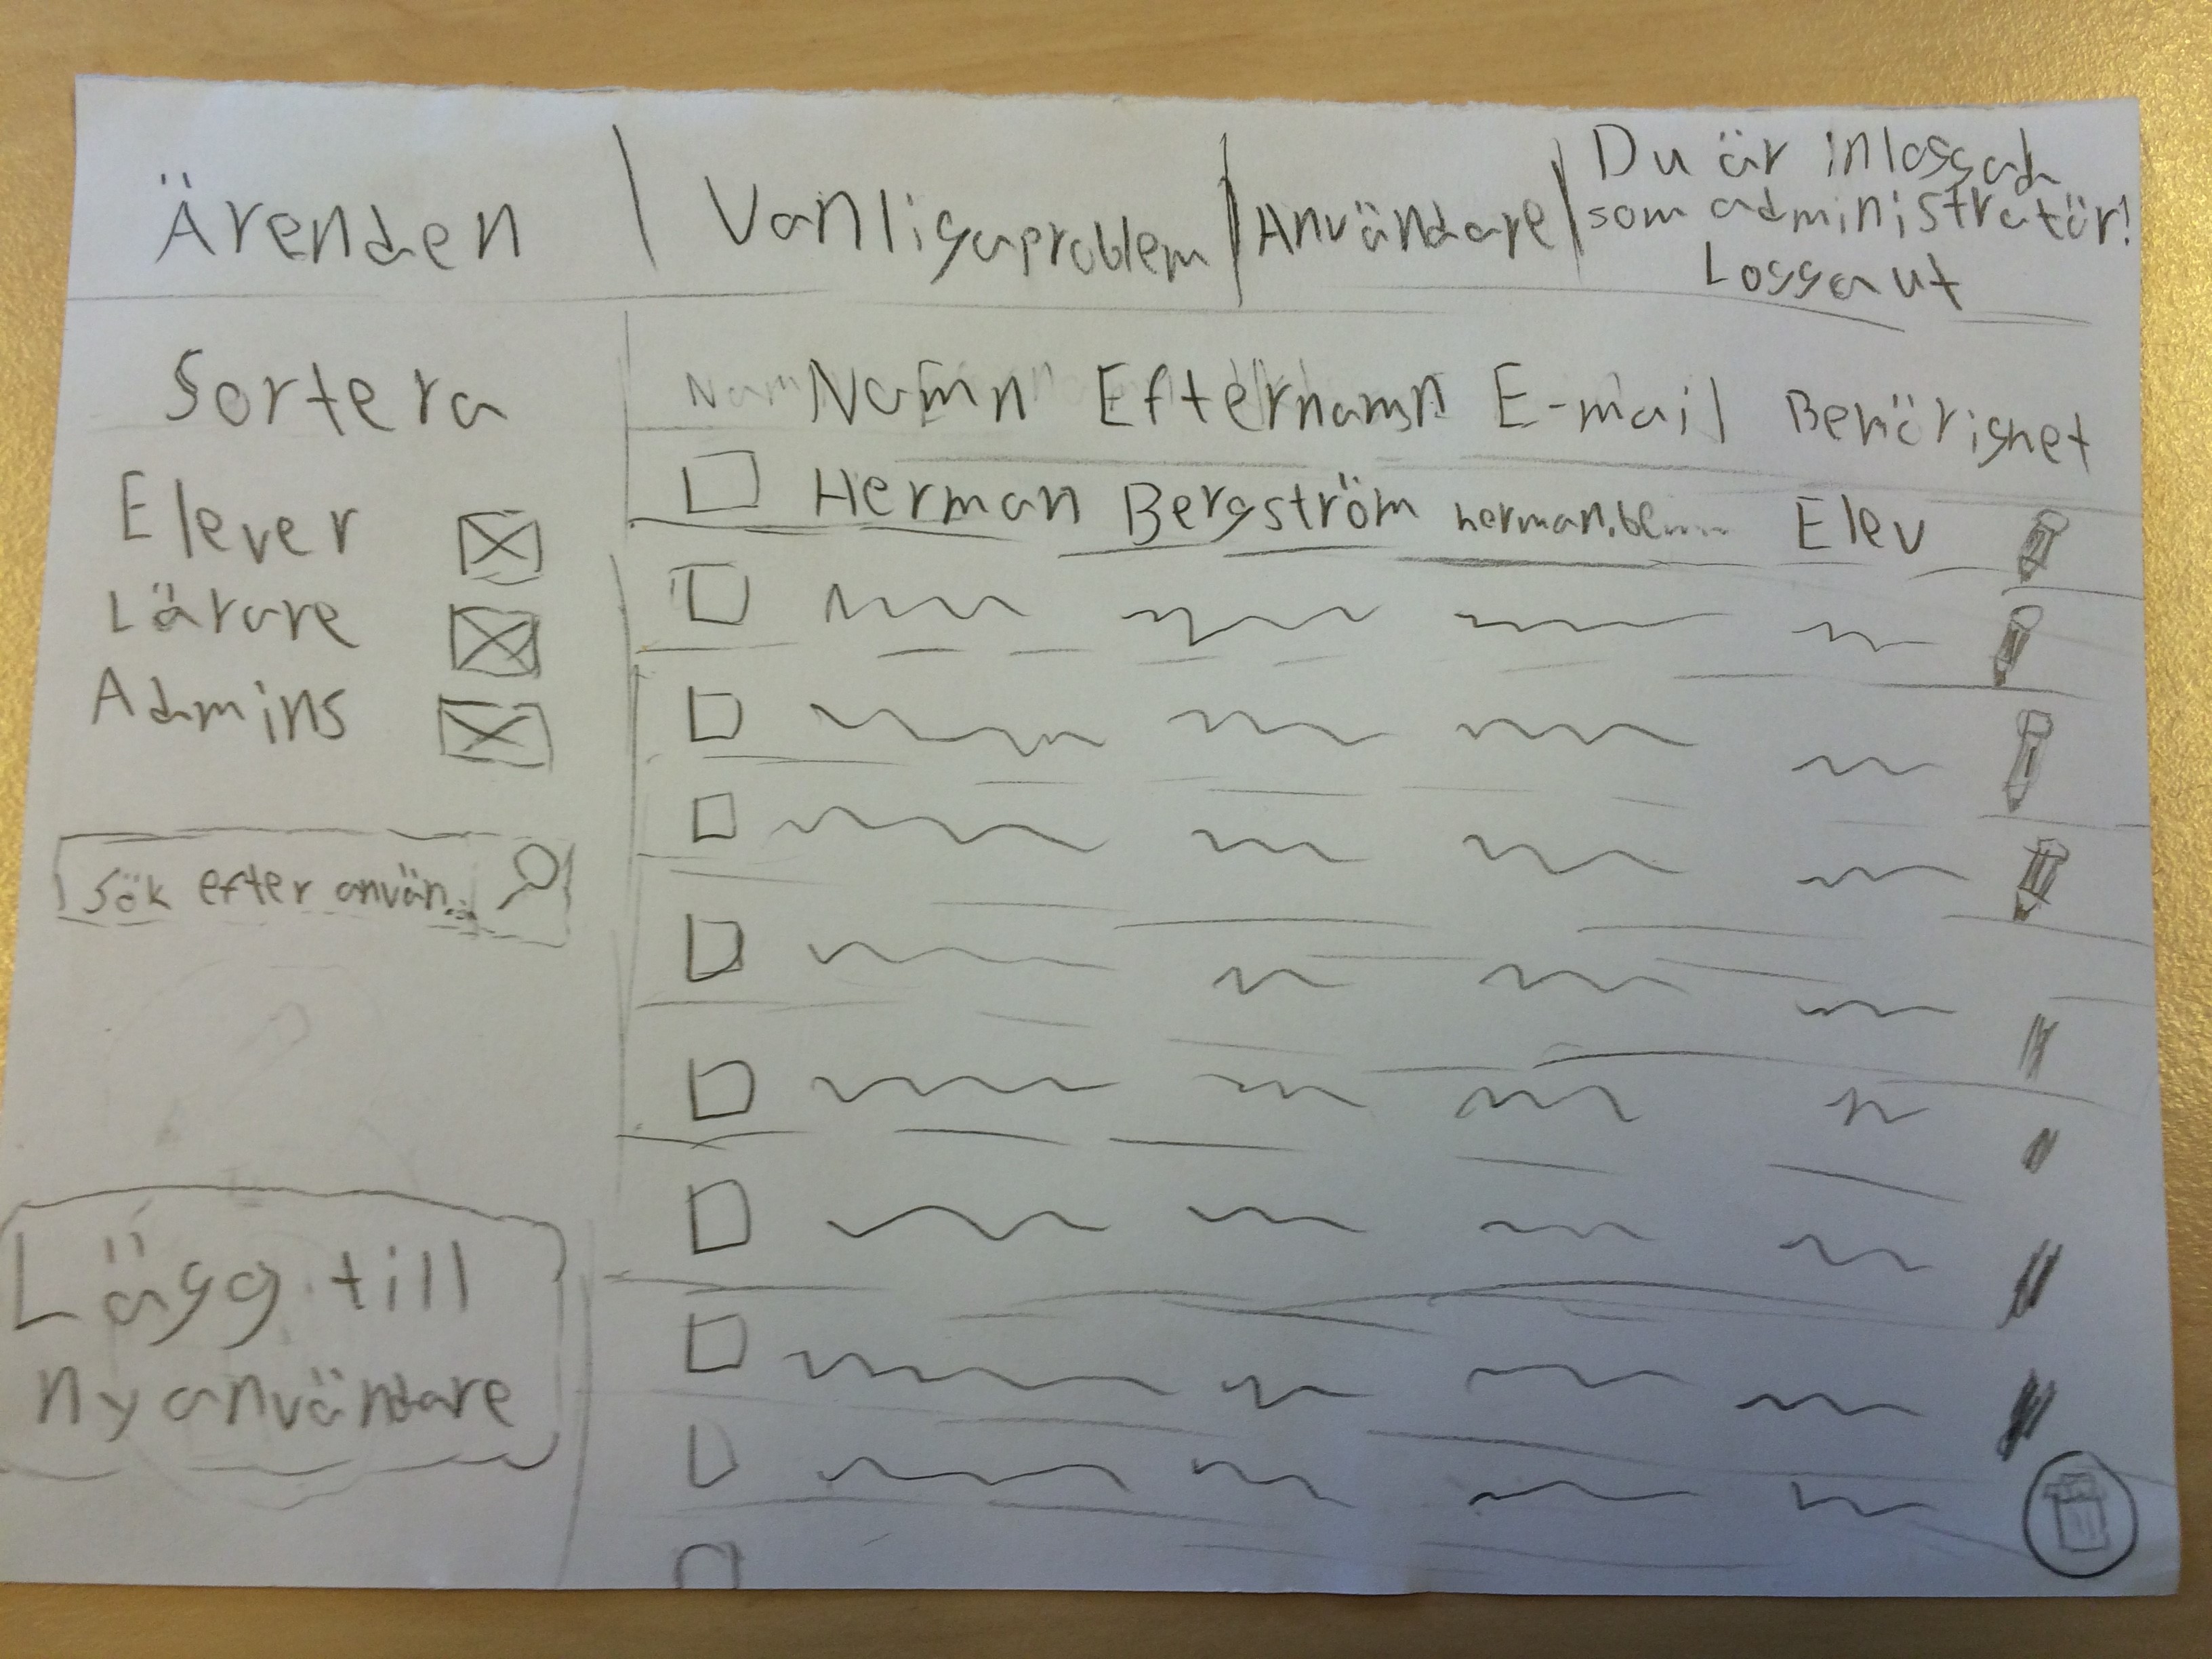 Ärenden
Vanligaproblem
Användare
Du är inloggad
som administratör!
Logga ut
Sortera
Elever
Lärare
Admins
Sök efter använ...
Lägg till
ny användare
Namn Efternamn E-mail Behörighet
Herman Bergström herman.be...... Elev